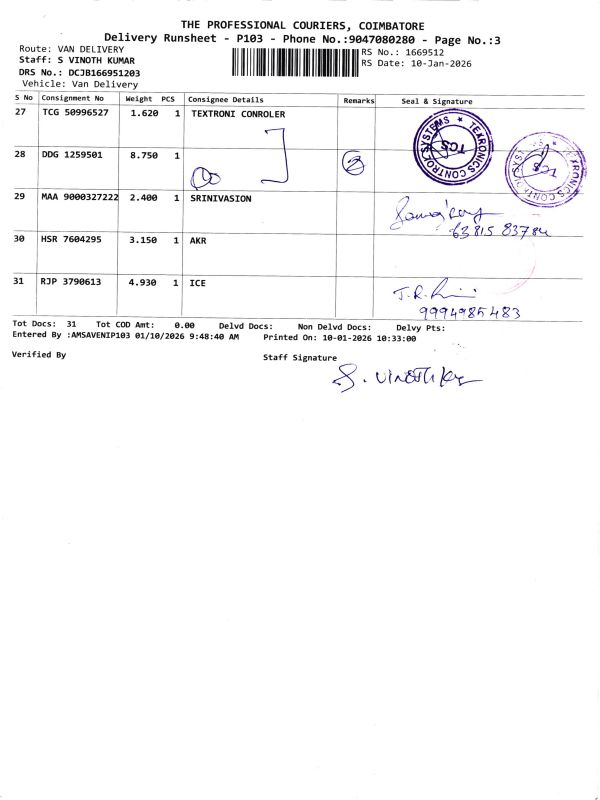 THE PROFESSIONAL COURIERS, COIMBATORE
Delivery Runsheet - P103 - Phone No.:9047080280 - Page No.:3
Route: VAN DELIVERY
RS No.: 1669512
Staff: S VINOTH KUMAR
RS Date: 10-Jan-2026
DRS No.: DCJB166951203
Vehicle: Van Delivery
S No Consignment No Weight PCS Consignee Details Remarks Seal & Signature
27 TCG 50996527 1.620 1 TEXTRONI CONROLER
TEXRONICS CONTROL SYSTEMS * TCS
28 DDG 1259501 8.750 1 2
29 MAA 9000327222 2.400 1 SRINIVASION
63815 83784
30 HSR 7604295 3.150 1 AKR
31 RJP 3790613 4.930 1 ICE
9994985483
Tot Docs: 31 Tot COD Amt: 0.00 Delvd Docs: Non Delvd Docs: Delvy Pts:
Entered By :AMSAVENIP103 01/10/2026 9:48:40 AM Printed On: 10-01-2026 10:33:00
Verified By Staff Signature
S. VINOTH